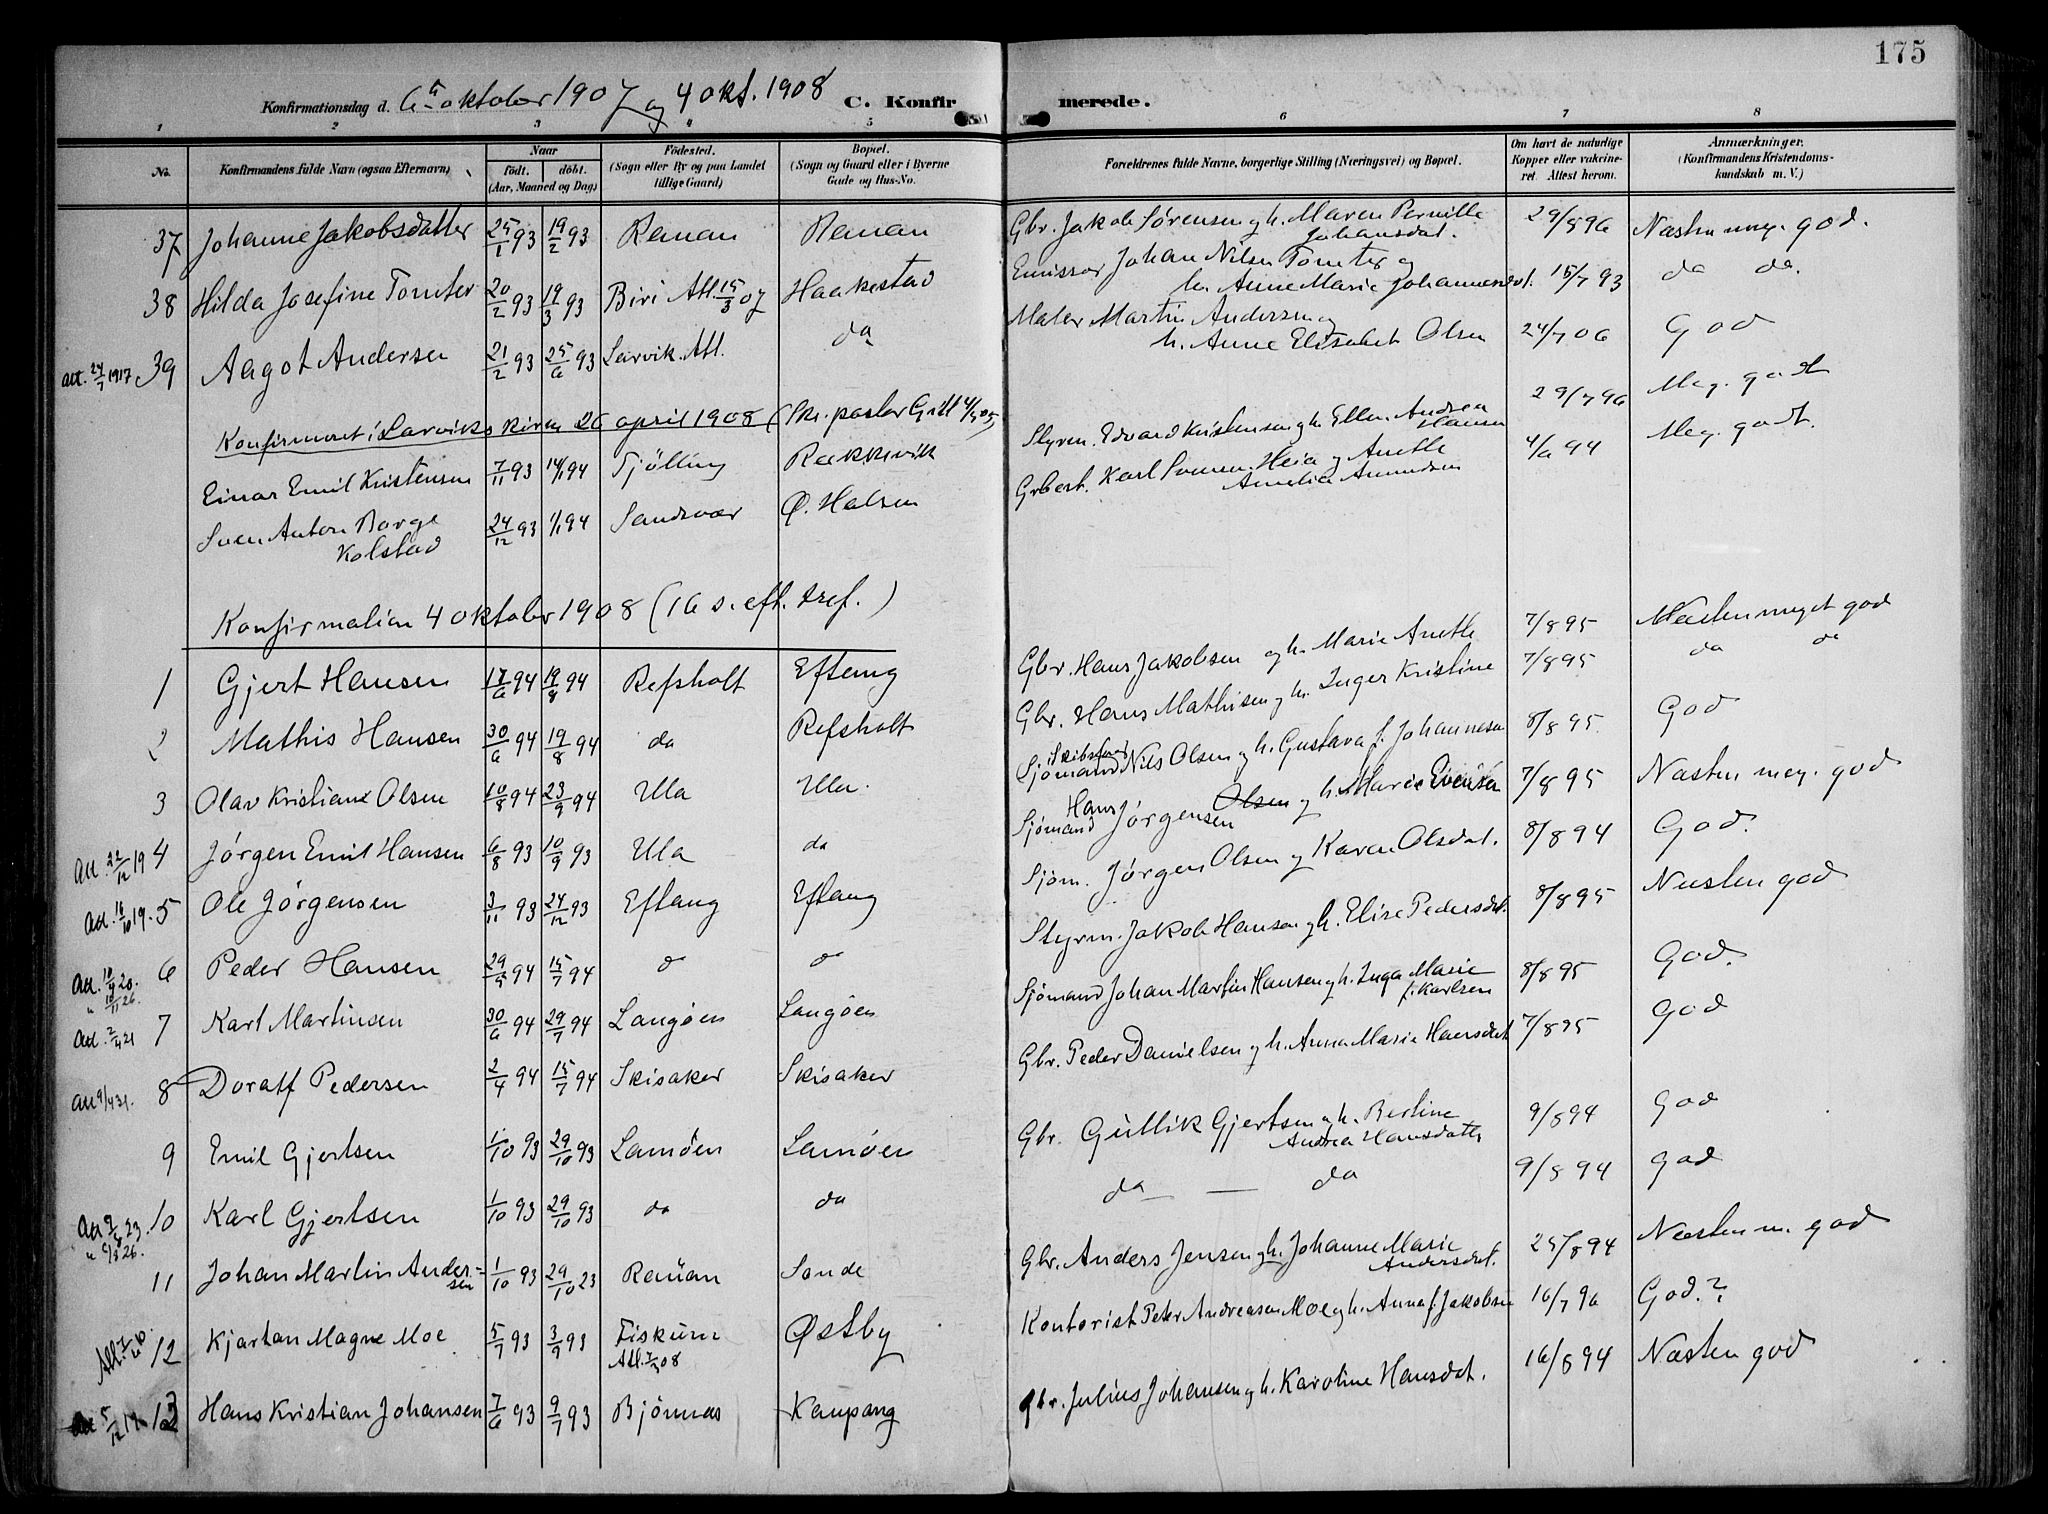 175
Konfirmationsdag d. 6te oktober 1907 og 4 okt. 1908 C. Konfirmerede.
1 2 3 4 5 6 7 8
No. Konfirmandens fulde Navn (ogsaa Efternavn) Naar født. døbt. (Aar, Maaned og Dag) Fødested. (Sogn eller By og paa Landet tillige Gaard) Bopæl. (Sogn og Gaard eller i Byerne Gade og Hus-No. Forældrenes fulde Navne, borgerlige Stilling (Næringsvei) og Bopæl. Om havt de naturlige Kopper eller vakcineret. Attest herom. Anmærkninger. (Konfirmandens Kristendomskundskab m. V.)
37 Johanne Jakobsdatter 25/1 93 19/2 93 Rauan Rauan Gbr. Jakob Sørensen og h. Maren Pernille Johansdat. 29/8 96 Næsten meg. god.
38 Hilda Josefine Tomter 20/2 93 19/3 93 Biri Att. 15/3 07 Haakestad Emissær Johan Nilsen Tomter og h. Anne Marie Johannesdat. 15/7 93 do do.
Att. 24/7 1917 39 Aagot Andersen 21/2 93 25/6 93 Larvik. Att. do Maler Martin Andersen og h. Anne Elisabet Olsen 24/7 06 God
Konfirmeret i Larviks kirke 26 april 1908 (Skr. pastor Grill
Einar Emil Kristensen 7/11 93 14/1 94 Tjølling Rækkevik Styrm. Edvard Kristensen og h. Ellen Andrea Hansen 29/7 96 Meg. godt
Sven Anton Borge Kolstad 24/12 93 1/1 94 Sandsvær Ø. Halsen Grbest. Karl Svensen Heia og Anette Amelia Amundsen 4/6 94 Meg. godt.
Konfirmation 4 oktober 1908 (16 s. eft. tref.)
1 Gjert Hansen 17/6 94 19/8 94 Refsholt Eftang Gbr. Hans Jakobsen og h. Marie Anette 7/8 95 Næsten meget god
2 Mathis Hansen 30/6 94 19/8 94 do Refsholt Gbr. Hans Mathisen og h. Inger Kristine 7/8 95 do do
3 Olav Kristian Olsen 10/8 94 23/9 94 Ula Ula. Sjømand Nils Olsen og h. Gustava f. Johannesen 8/8 95. God
Att. 22/12 19 4 Jørgen Emil Hansen 6/8 93 10/9 93 Ula do Sjømand Hans Jørgensen Olsen og h. Marie Evensen 7/8 95 Næsten meg. god
Att. 16/10 19. 5 Ole Jørgensen 3/11 93 24/12 93 Eftang Eftang Sjøm. Jørgen Olsen og Karen Olsdat. 8/8 94 God.
Att. 10/9 20. " 10/11 26. 6 Peder Hansen 29/5 94 15/7 94 do do Styrm. Jakob Hansen og h. Elise Pedersdat. 8/8 95 Næsten god
Att. 2/4 21 7 Karl Martinsen 30/6 94 29/7 94 Langøen Langøen Sjømand Johan Martin Hansen og h. Inga Marie f. Karlsen 8/8 95 God.
Att 9/4 31. 8 Doralf Pedersen 2/4 94 15/7 94 Skisaker Skisaker Gbr. Peder Danielsen og h. Anna Marie Hansdat 7/8 95 God
9 Emil Gjertsen 1/10 93 29/10 93 Lamøen Lamøen Gbr. Gullik Gjertsen og h. Bertine Andrea Hansdatter 9/8 94 God
Att 9/8 23. " 6/8 26. 10 Karl Gjertsen 1/10 93 29/10 93 do do do — do 9/8 94 God
11 Johan Martin Andersen 1/10 93 29/10 23 Rauan Sande Gbr. Anders Jensen og h. Johanne Marie Andersdat. 25/8 94 Næsten m. god
12 Kjartan Magne Moe 5/7 93 3/9 93 Fiskum Østby Kontorist Peter Andreasen Moe og h. Anna f. Jakobsen 16/7 96 God.?
13 Hans Kristian Johansen 7/6 93 9/7 93 Bjønnes Kaupang Gbr. Julius Johansen og h. Karoline Hansdat. 16/8 94 Næsten god